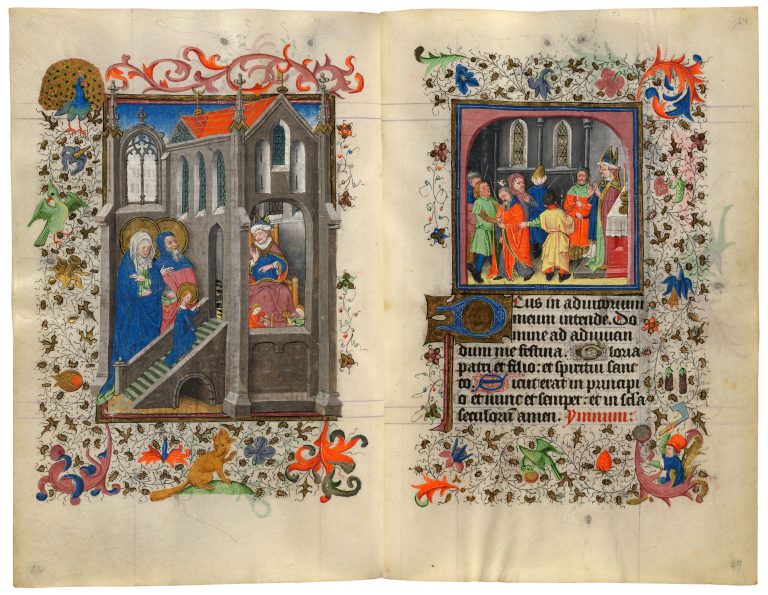 24
Deus in adiutorium
meum intende. Do
mine ad adiuuan
dum me festina. Gloria
patri et filio: et spiritui sanc
to. Sicut erat in principi
o et nunc et semper: et in scla
seculorū amen. Ymnum:
47